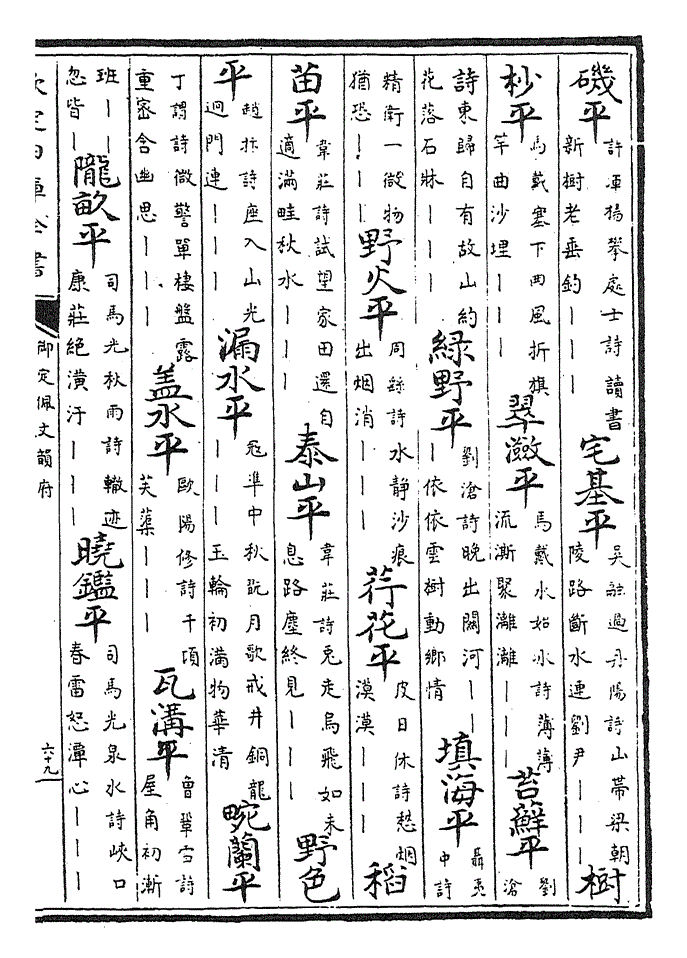 磯平許渾楊攀處士詩讀書新樹老垂釣｜｜｜宅基平吳融過丹陽詩山帶梁朝陵路斷水連劉尹｜｜｜樹
杪平馬戴塞下曲風折旗竿曲沙埋｜｜｜翠瀲平馬戴水始冰詩薄薄流澌聚灕灕｜｜｜苔蘚平劉滄
詩東歸自有故山約花落石牀｜｜｜綠野平劉滄詩晚出關河｜｜｜依依雲樹動鄉情填海平聶夷中詩
精衛一微物猶恐｜｜｜野火平周繇詩水靜沙痕出烟消｜｜｜荇花平皮日休詩愁烟漠漠｜｜｜稻
苗平韋莊詩試望家田還自適滿畦秋水｜｜｜泰山平韋莊詩兔走烏飛如未息路塵終見｜｜｜野色
平趙抃詩座入山光迥門連｜｜｜漏水平寇準中秋翫月歌戒井銅龍｜｜｜玉輪初滿物華清畹蘭平
丁謂詩微警單棲盤露重密含幽思｜｜｜盖水平歐陽修詩千頃芙蕖｜｜｜瓦溝平曾鞏雪詩屋角初漸
班｜｜忽皆｜隴畝平司馬光秋雨詩轍迹康莊絕潢汙｜｜｜曉鑑平司馬光泉水詩峽口春雷怒潭心｜｜｜
欽定四庫全書
御定佩文韻府
六十九